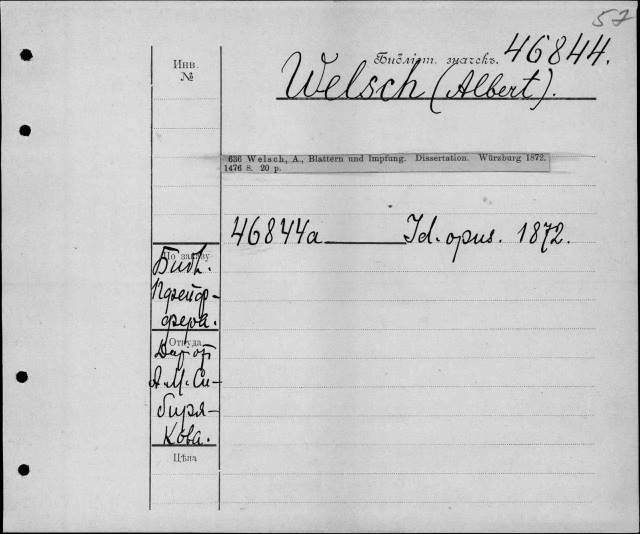 57
Инв.
№
Библіот. значекъ. 46844.
Welsch (Albert).
636 Welsch, A., Blattern und Impfung. Dissertation. Würzburg 1872.
1476 8. 20 p.
46844a Id. opus. 1872.
По заказу
Библ.
Пфейф-
фера.
Откуда
Дар от
А. М. Си-
биря-
кова.
Цѣна